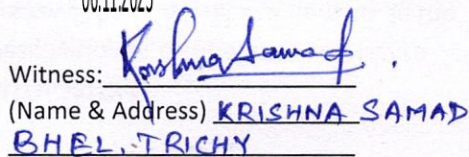 06.11.2025
Witness: Krishna Samad.
(Name & Address) KRISHNA SAMAD
BHEL, TRICHY